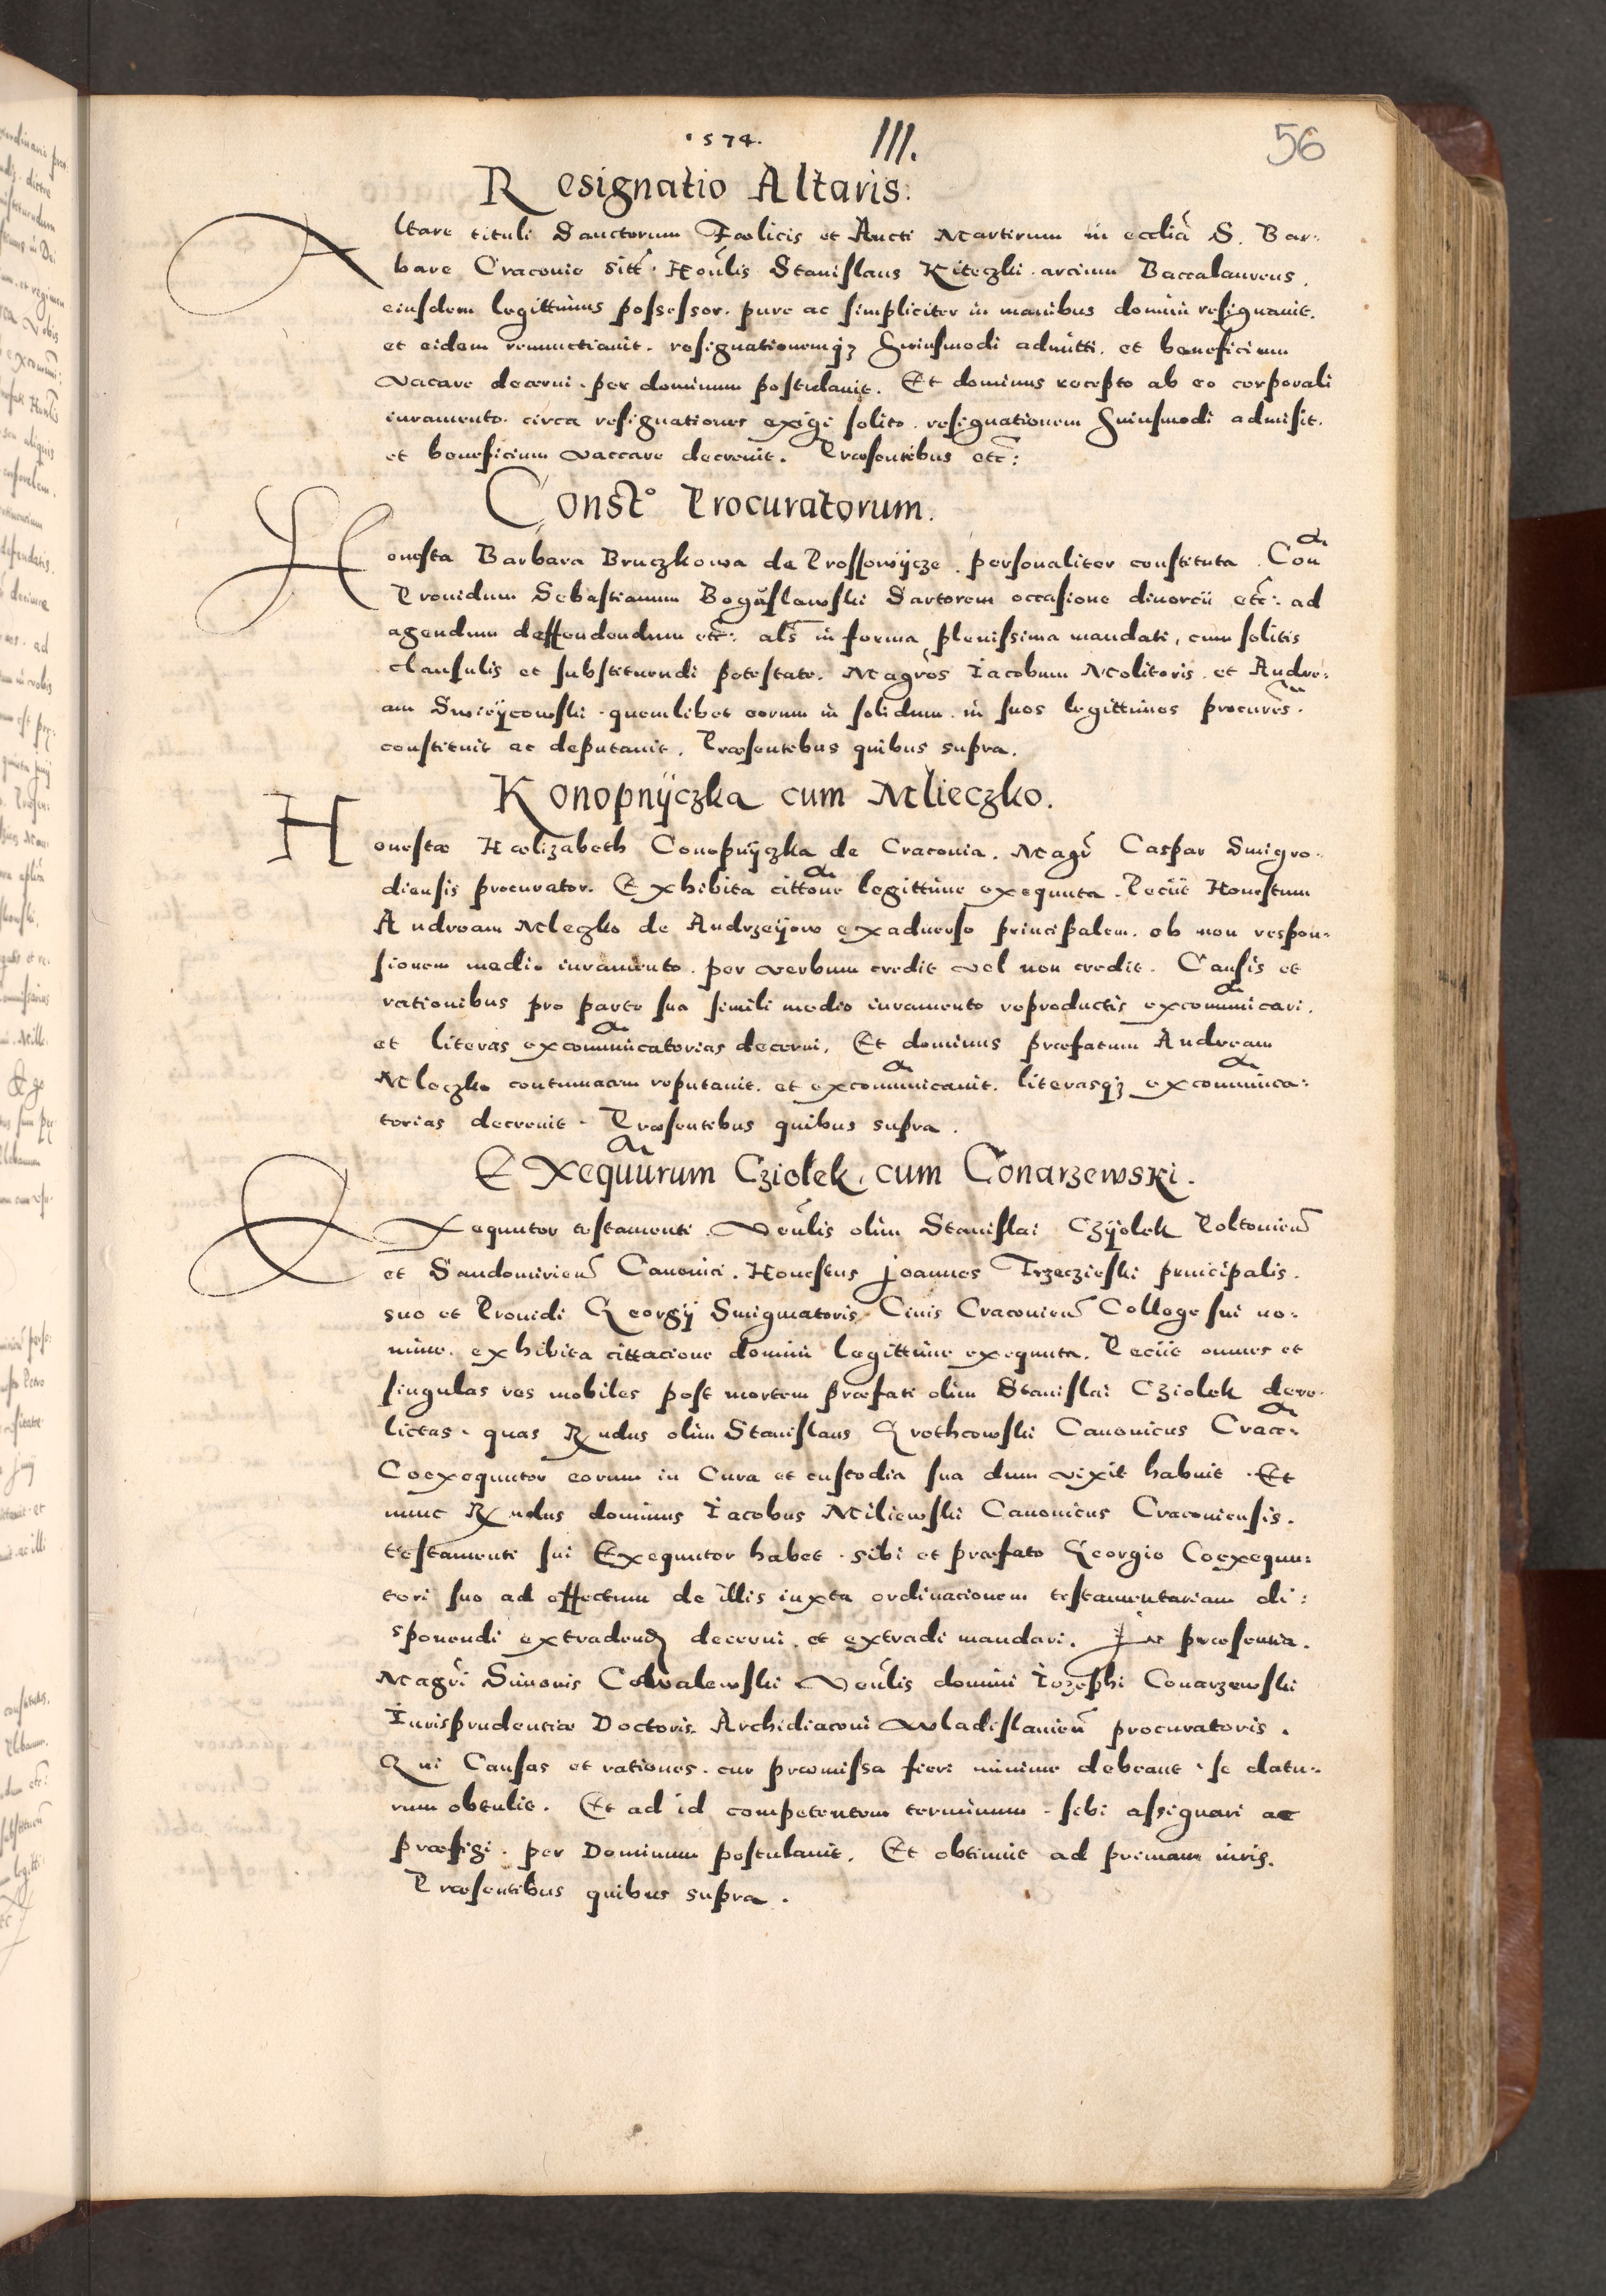 1574. III. 56
Resignatio Altaris:
Altare tituli Sanctorum Fœlicis et Aucti Martirum in ecclīa S. Bar:
bare Cracovie sitt̃. Honl̃is Stanislaus Kiteczki arcium Baccalaureus,
eiusdem legittimus possessor. pure ac simpliciter in manibus domini resignavit.
et eidem renunctiavit. resignationemqʒ huiusmodi admitti. et beneficium
vacare decerni. per dominum postulavit. Et dominus recepto ab eo corporali
iuramento. circa resignationes exigi solito. resignationem huiusmodi admisit.
et beneficium vaccare decrevit. Præsentibus etc̃:
Const° Procuratorum.
Honesta Barbara Bruczkowa de Prossowÿcze. personaliter constituta. Con̄
Providum Sebastianum Boguslawski Sartorem occasione divorcii etc̃: ad
agendum deffendendum etc̃: als̃ in forma plenissima mandati, cum solitis
clausulis et substituendi potestate. Magr̃os Iacobum Molitoris. et Andre:
am Swieÿcowski. quemlibet eorum in solidum. in suos legittimos procures̃.
constituit ac deputavit. Præsentibus quibus supra.
Konopnÿczka cum Mlieczko.
Honestæ Hælizabeth Conopnÿczka de Cracovia. Magr̃ Caspar Smigro:
diensis procurator. Exhibita cittone legittime exequuta. Peciit Honestum
Andream Mleczko de Andrzeÿow ex adverso principalem. ob non respon:
sionem medio iuramento. per verbum credit vel non credit. Causis et
rationibus pro parte sua simili medio iuramento reproductis excomunicari.
et literas excomunicatorias decerni. Et dominus præfatum Andream
Mleczko contumacem reputavit. et excomunicavit. literasqʒ excomunica:
torias decrevit. Præsentibus quibus supra.
Exequūrum Cziolek. cum Conarzewski.
Exequutor testamenti Venl̃is olim Stanislai Czÿolek Poltovien̄
et Sandomirien̄ Canonici. Honestus Joannes Trzeczieski principalis.
suo et Providi Georgÿ Smigmatoris Civis Cracovien̄ Collegę sui no:
mine. exhibita cittacione domini legittime exequuta. Peciit omnes et
singulas res mobiles post mortem præfati olim Stanislai Cziolek dere:
lictas. quas Rñdus olim Stanislaus Grothcowski Canonicus Crac̃:
Coexequutor eorum in Cura et custodia sua dum vixit habuit. Et
nunc Rñdus dominus Iacobus Miliewski Canonicus Cracoviensis.
testamenti sui Exequutor habet. sibi et præfato Georgio Coexequu:
tori suo ad effectum de illis iuxta ordinacionem testamentariam di:
sponendi extradend̄ decerni. et extradi mandari. In præsentia.
Magr̃i Simonis Cowalewski Venl̃is domini Iozephi Conarzewski
Iurisprudentiæ Doctoris Archidiaconi Wladislavien̄ procuratoris.
Qui Causas et rationes. cur præmissa fieri minime debeant. se datu:
rum obtulit. Et ad id competentem terminum. sibi assignari ac
præfigi. per Dominum postulavit. Et obtinuit ad primam iuris.
Præsentibus quibus supra.